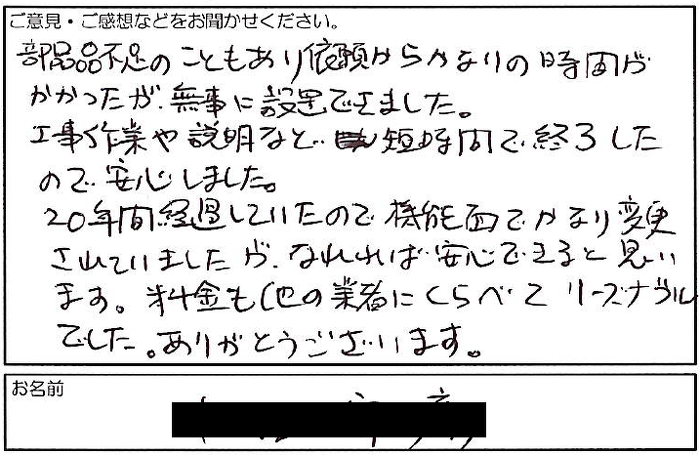 ご意見・ご感想などをお聞かせください。
部品不足のこともあり依頼からかなりの時間が
かかったが、無事に設置できました。
工事作業や説明など短時間で終了した
ので安心しました。
20年間経過していたので機能面でかなり変更
されていましたが、なれれば安心できると思い
ます。料金も他の業者にくらべてリーズナブル
でした。ありがとうございます。
お名前